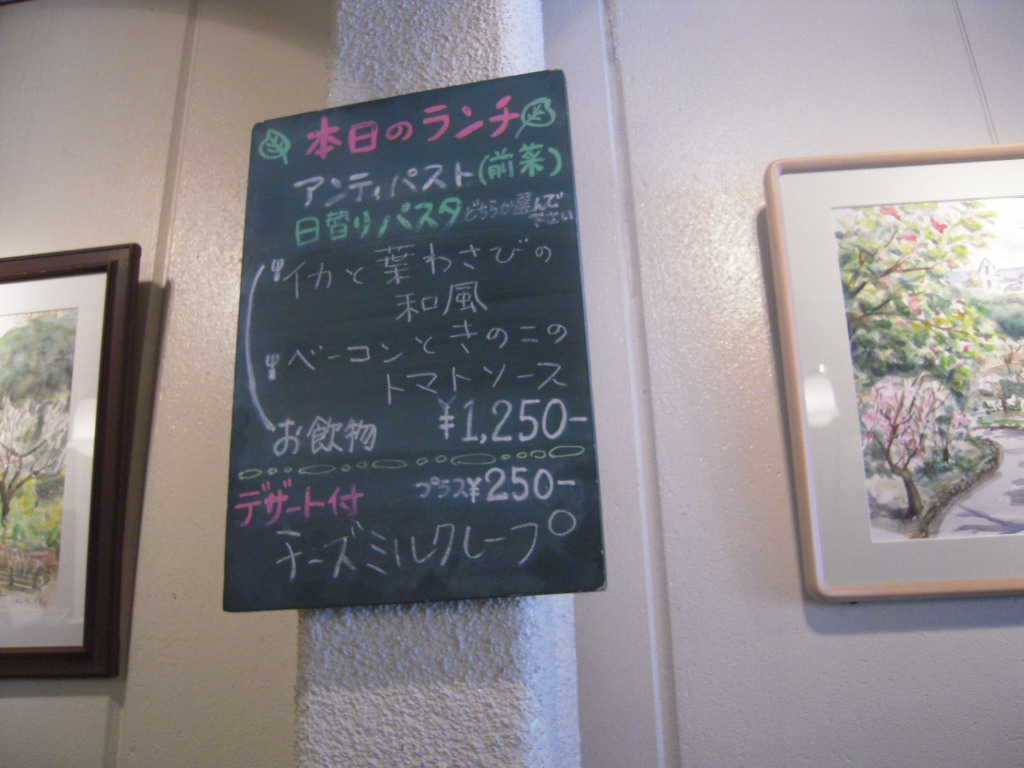 本日のランチ
アンティパスト(前菜)
日替りパスタ どちらか選んで下さい
イカと葉わさびの
和風
ベーコンときのこの
トマトソース
お飲物 ¥1,250-
デザート付 プラス¥250-
チーズミルクレープ